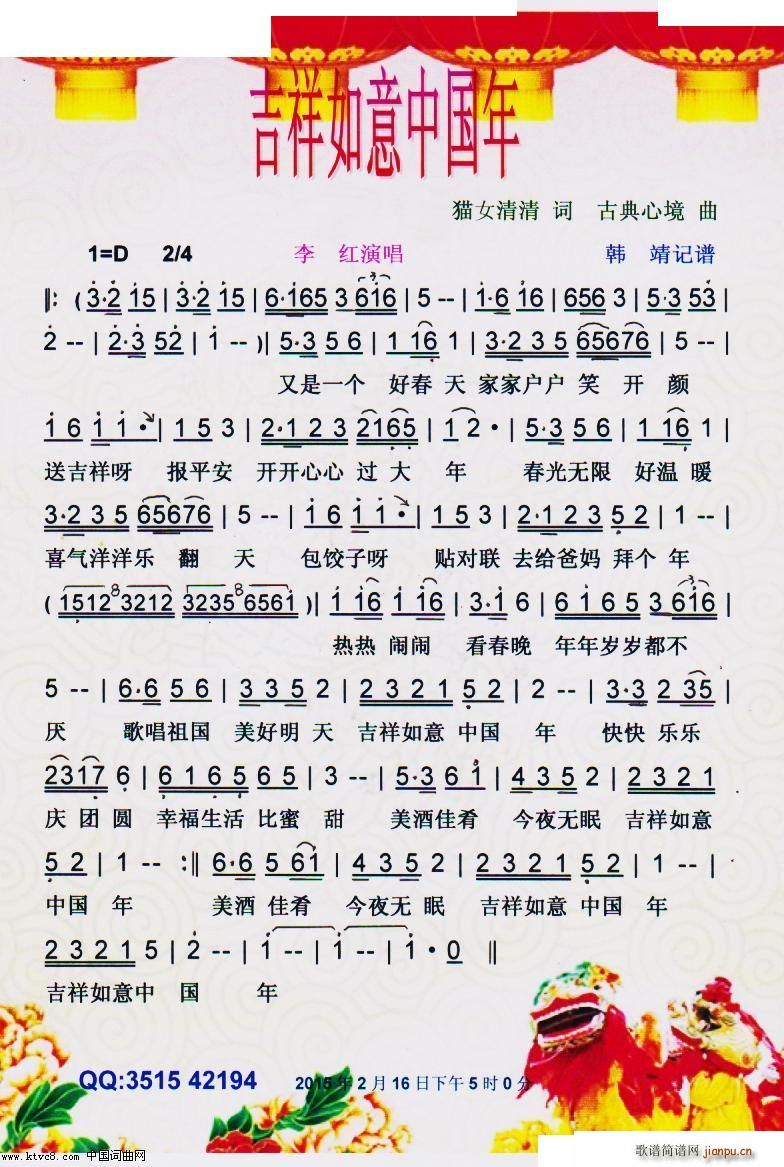 吉祥如意中国年
猫女清清 词 古典心境 曲
1=D 2/4 李 红演唱 韩 靖记谱
‖: ( 3·2 15 | 3·2 15 | 6·165 3 616 | 5 -- | 1·6 16 | 656 3 | 5·3 53 |
2 -- | 2·3 52 | 1 -- )| 5·3 56 | 1 16 1 | 3·2 3 5 65676 | 5 -- |
又是一个 好春 天 家家户户 笑 开 颜
1 6 1 1· | 1 5 3 | 2·1 2 3 2165 | 1 2· | 5·3 56 | 1 16 1 |
送吉祥呀 报平安 开开心心 过 大 年 春光无限 好温 暖
3·2 3 5 65676 | 5 -- | 1 6 1 1· | 1 5 3 | 2·1 2 3 5 2 | 1 -- |
喜气洋洋乐 翻 天 包饺子呀 贴对联 去给爸妈 拜个 年
( 15128 3212 32358 6561 )| 1 16 1 16 | 3·1 6 | 6 1 6 5 3 616 |
热热 闹闹 看春晚 年年岁岁都不
5 -- | 6·6 5 6 | 3 3 5 2 | 2 3 2 1 5 2 | 1 -- | 3·3 2 35 |
厌 歌唱祖国 美好明 天 吉祥如意 中国 年 快快 乐乐
2317 6 | 6 1 6 5 6 5 | 3 -- | 5·3 6 1 | 4 3 5 2 | 2 3 2 1
庆 团 圆 幸福生活 比蜜 甜 美酒佳肴 今夜无眠 吉祥如意
5 2 | 1 -- :‖ 6·6 5 61 | 4 3 5 2 | 2 3 2 1 5 2 | 1 -- |
中国 年 美酒 佳肴 今夜无 眠 吉祥如意 中国 年
2 3 2 1 5 | 2 -- | 1 -- | 1 -- | 1·0 ‖
吉祥如意中 国 年
QQ:3515 42194 2015年2月16日下午5时0分
www.ktvc8.com 中国词曲网
歌谱简谱网
jianpu.cn